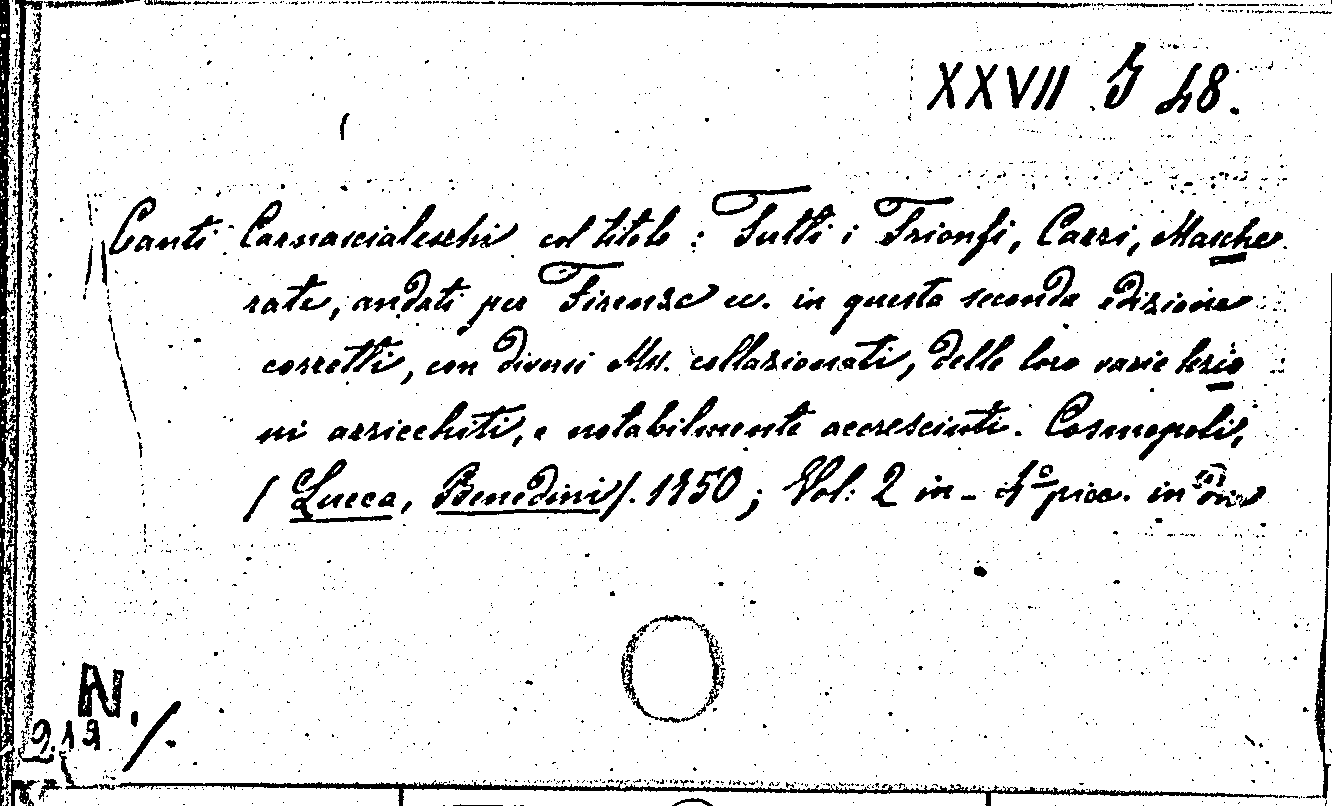 XXVII J 48.
Canti Carnascialeschi col titolo : Tutti i Trionfi, Carri, Masche
rate, andati per Firenze ec. in questa seconda edizione
corretti, con diversi Mss. collazionati, delle loro varie lezio
ni arricchiti, e notabilmente accresciuti. Cosmopoli,
( Lucca, Benedini). 1850 ; Vol: 2 in - 4° picc. in
N.
212 /.